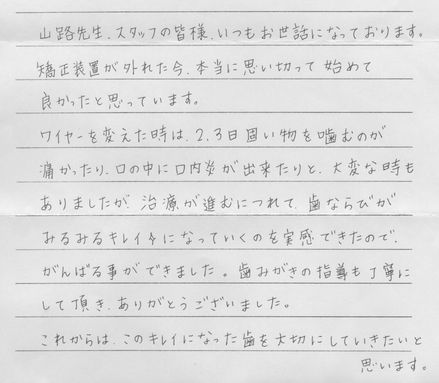 山路先生、スタッフの皆様、いつもお世話になっております。
矯正装置が外れた今、本当に思い切って始めて
良かったと思っています。
ワイヤーを変えた時は、2、3日固い物を噛むのが
痛かったり、口の中に口内炎が出来たりと、大変な時も
ありましたが、治療が進むにつれて、歯ならびが
みるみるキレイになっていくのを実感できたので、
がんばる事ができました。歯みがきの指導も丁寧に
して頂き、ありがとうございました。
これからは、このキレイになった歯を大切にしていきたいと
思います。